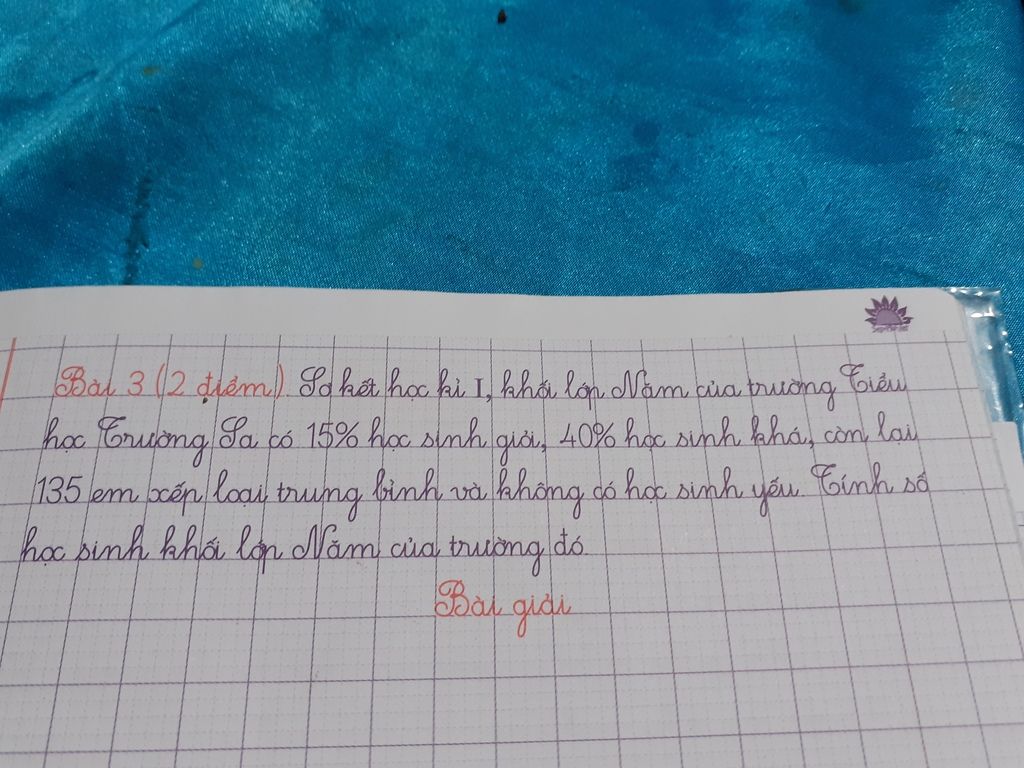 Bài 3 (2 điểm). Sơ kết học kì I, khối lớp Năm của trường Tiểu
học Trường Sa có 15% học sinh giỏi, 40% học sinh khá, còn lại
135 em xếp loại trung bình và không có học sinh yếu. Tính số
học sinh khối lớp Năm của trường đó.
Bài giải